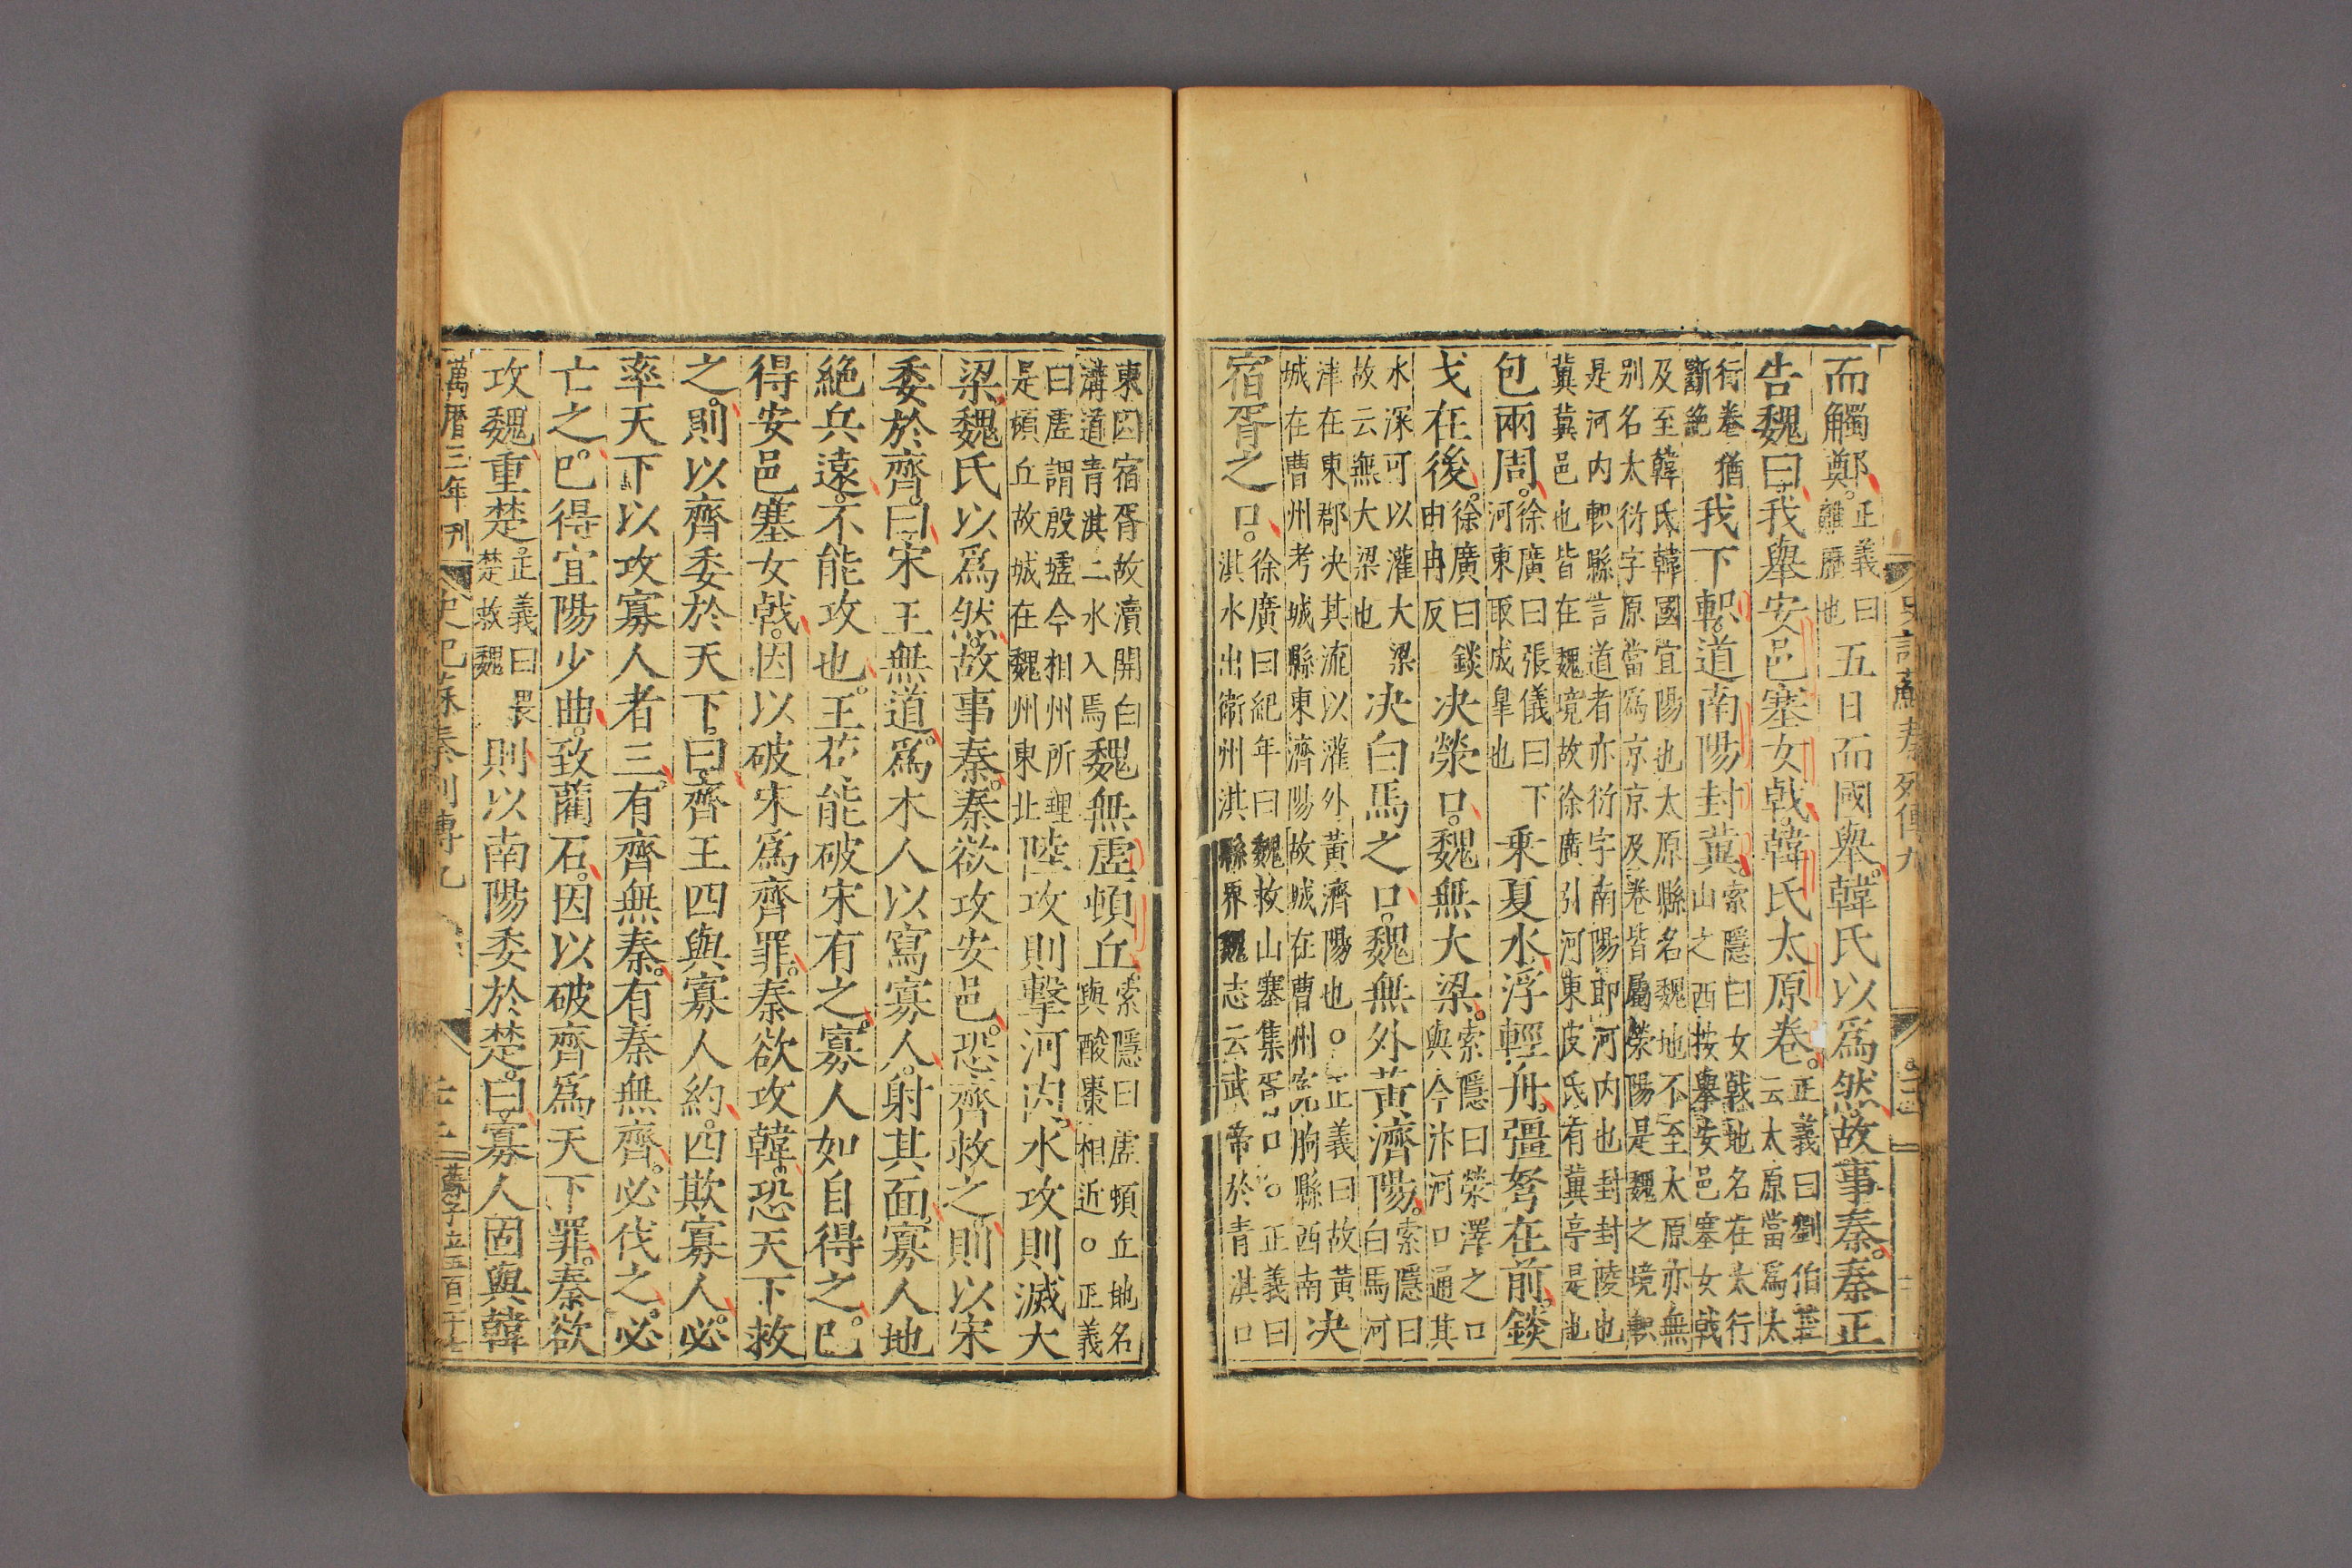 史記蘇秦列傳九
而觸鄭。正義曰離歷也五日而國舉。韓氏以爲然。故事秦。秦正
告魏曰。我舉安邑塞女戟。韓氏太原卷。正義曰劉伯莊云太原當爲太
行卷猶斷絶我下軹。道南陽封冀。索隱曰女戟地名在太行山之西按舉安邑塞女戟
及至韓氏韓國宜陽也太原縣名魏地不至太原亦無别名太衍字原當爲京京及卷皆屬滎陽是魏之境軹
是河内軹縣言道者亦衍字南陽即河内也封封陵也冀冀邑也皆在魏境故徐廣引河東皮氏有冀亭是也
包兩周。徐廣曰張儀曰下河東取成皐也乗夏水。浮輕舟。彊弩在前。錟
戈在後。徐廣曰錟由冉反决滎口。魏無大梁。索隱曰滎澤之口與今汴河口通其
水深可以灌大梁故云無大梁也决白馬之口。魏無外黄濟陽。索隱曰白馬河
津在東郡决其流以灌外黄濟陽也○正義曰故黄城在曹州考城縣東濟陽故城在曹州寃朐縣西南决
宿胥之口。徐廣曰紀年曰魏救山塞集胥口○正義曰淇水出衛州淇縣界魏志云武帝於青淇口
東因宿胥故瀆開白溝道青淇二水入焉魏無虛頓丘。索隱曰虛頓丘地名與酸棗相近○正義
曰虛謂殷墟今相州所理是頓丘故城在魏州東北陸攻則擊河内。水攻則滅大
梁。魏氏以爲然。故事秦。秦欲攻安邑。恐齊救之。則以宋
委於齊。曰。宋王無道。爲木人以寫寡人。射其面。寡人地
絶兵遠。不能攻也。王若能破宋有之。寡人如自得之。已
得安邑塞女戟。因以破宋爲齊罪。秦欲攻韓。恐天下救
之。則以齊委於天下。曰。齊王四與寡人約。四欺寡人。必
率天下以攻寡人者三。有齊無秦。有秦無齊。必伐之。必
亡之。已得宜陽少曲。致藺石。因以破齊爲天下罪。秦欲
攻魏重楚。正義曰畏楚救魏則以南陽委於楚。曰。寡人固與韓
萬曆三年刊 史記蘇秦列傳九